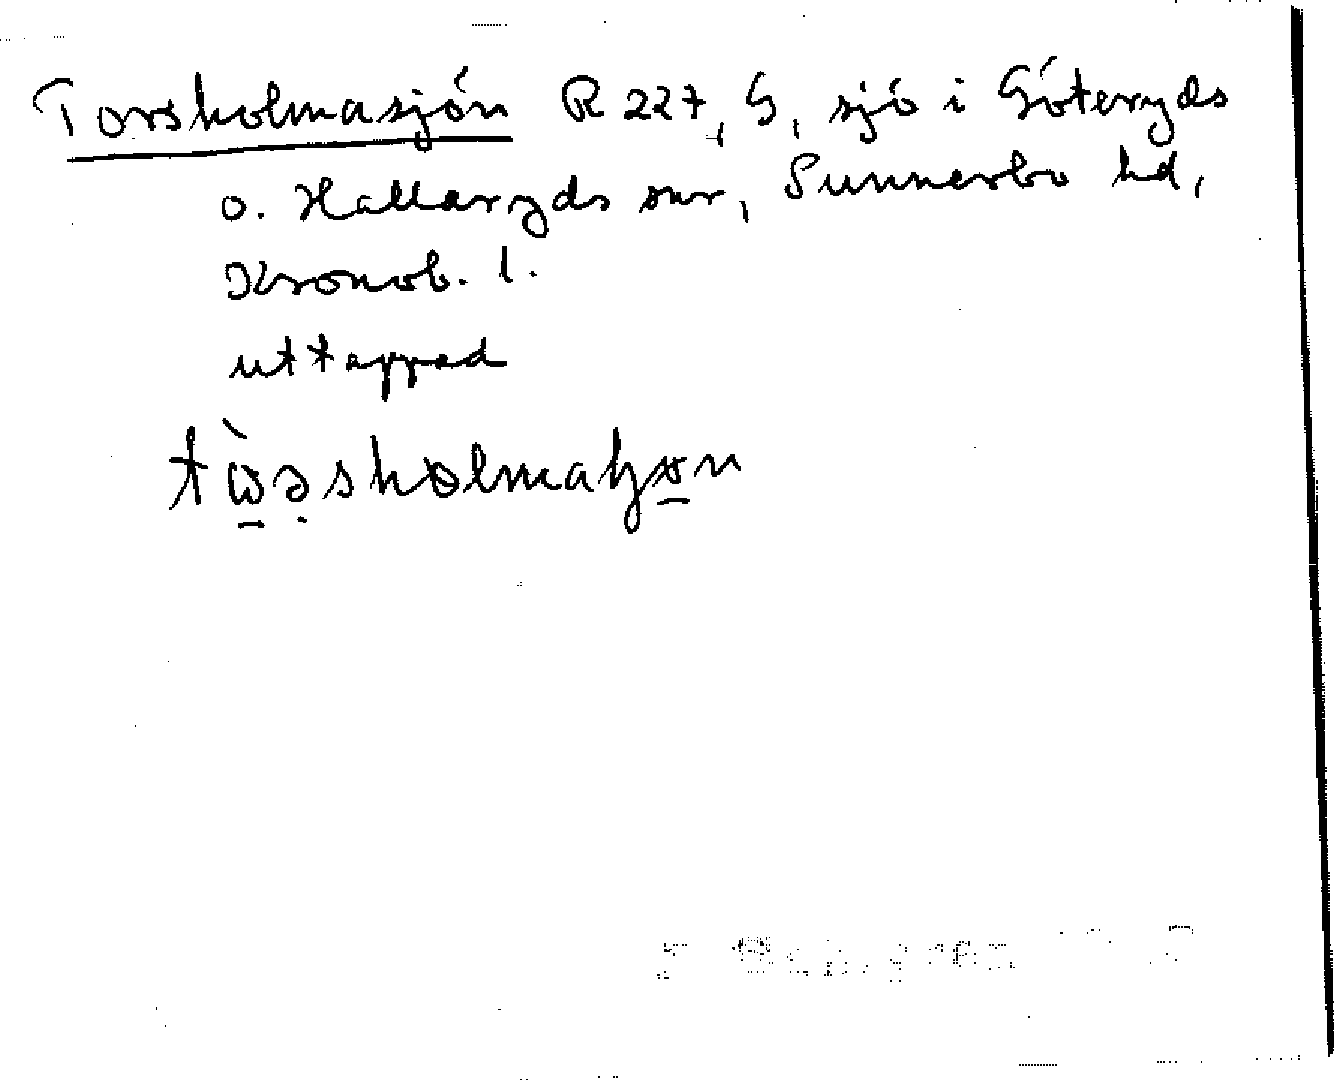 Torsholmasjön R 227, G, sjö i Göteryds
o. Hallaryds snr, Sunnerbo hd,
Kronob. l.
uttappad